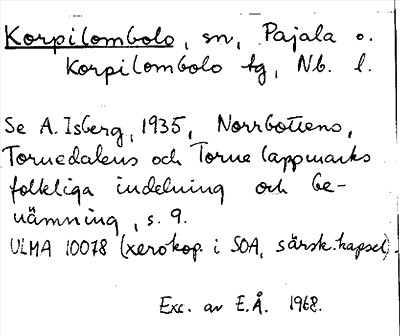 Korpilombolo, sn, Pajala o.
Korpilombolo tg, Nb. l.
Se A. Isberg, 1935, Norrbottens,
Tornedalens och Torne lappmarks
folkliga indelning och be-
nämning, s. 9.
ULMA 10078 (xerokop. i SOA, särsk. kapsel).
Exc. av E.Å. 1968.